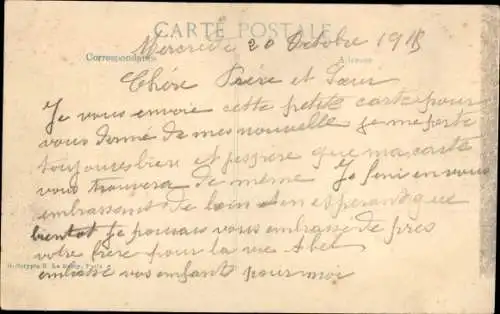 CARTE POSTALE
Mercredi 20 Octobre 1915
Correspondance
Adresse
Chére Frére et Sœur
Je vous envoie cette petite carte pour
vous donné de mes nouvelle je me porte
toujours bien et j'espére que ma carte
vous trouvera de même. Je fini en vous
embrassant de loin en esperant que
bientot je pourais vous embrasse de pres
votre frère pour la vie Abel
embrassé vos enfant pour moi